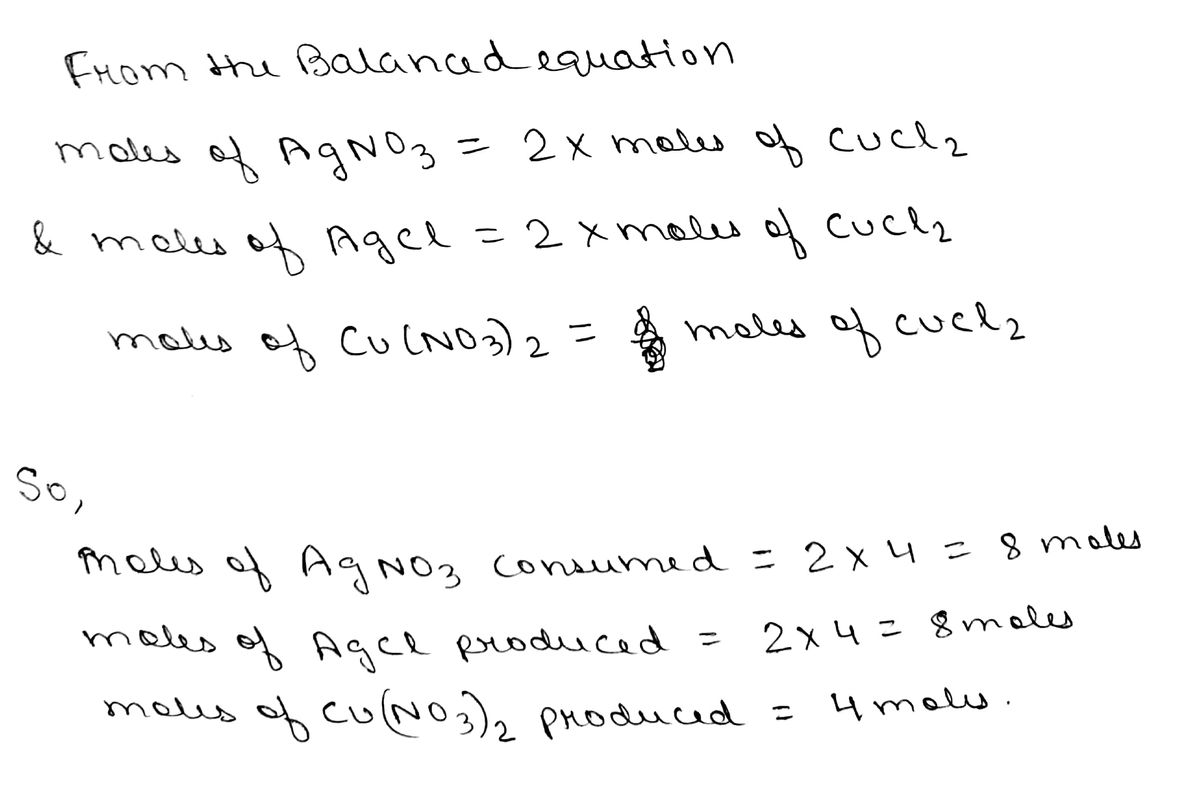 From the Balanced equation
moles of AgNO3 = 2 x moles of CuCl2
& moles of AgCl = 2 x moles of CuCl2
moles of Cu(NO3)2 = moles of CuCl2
So,
moles of AgNO3 consumed = 2 x 4 = 8 moles
moles of AgCl produced = 2 x 4 = 8 moles
moles of Cu(NO3)2 produced = 4 moles.